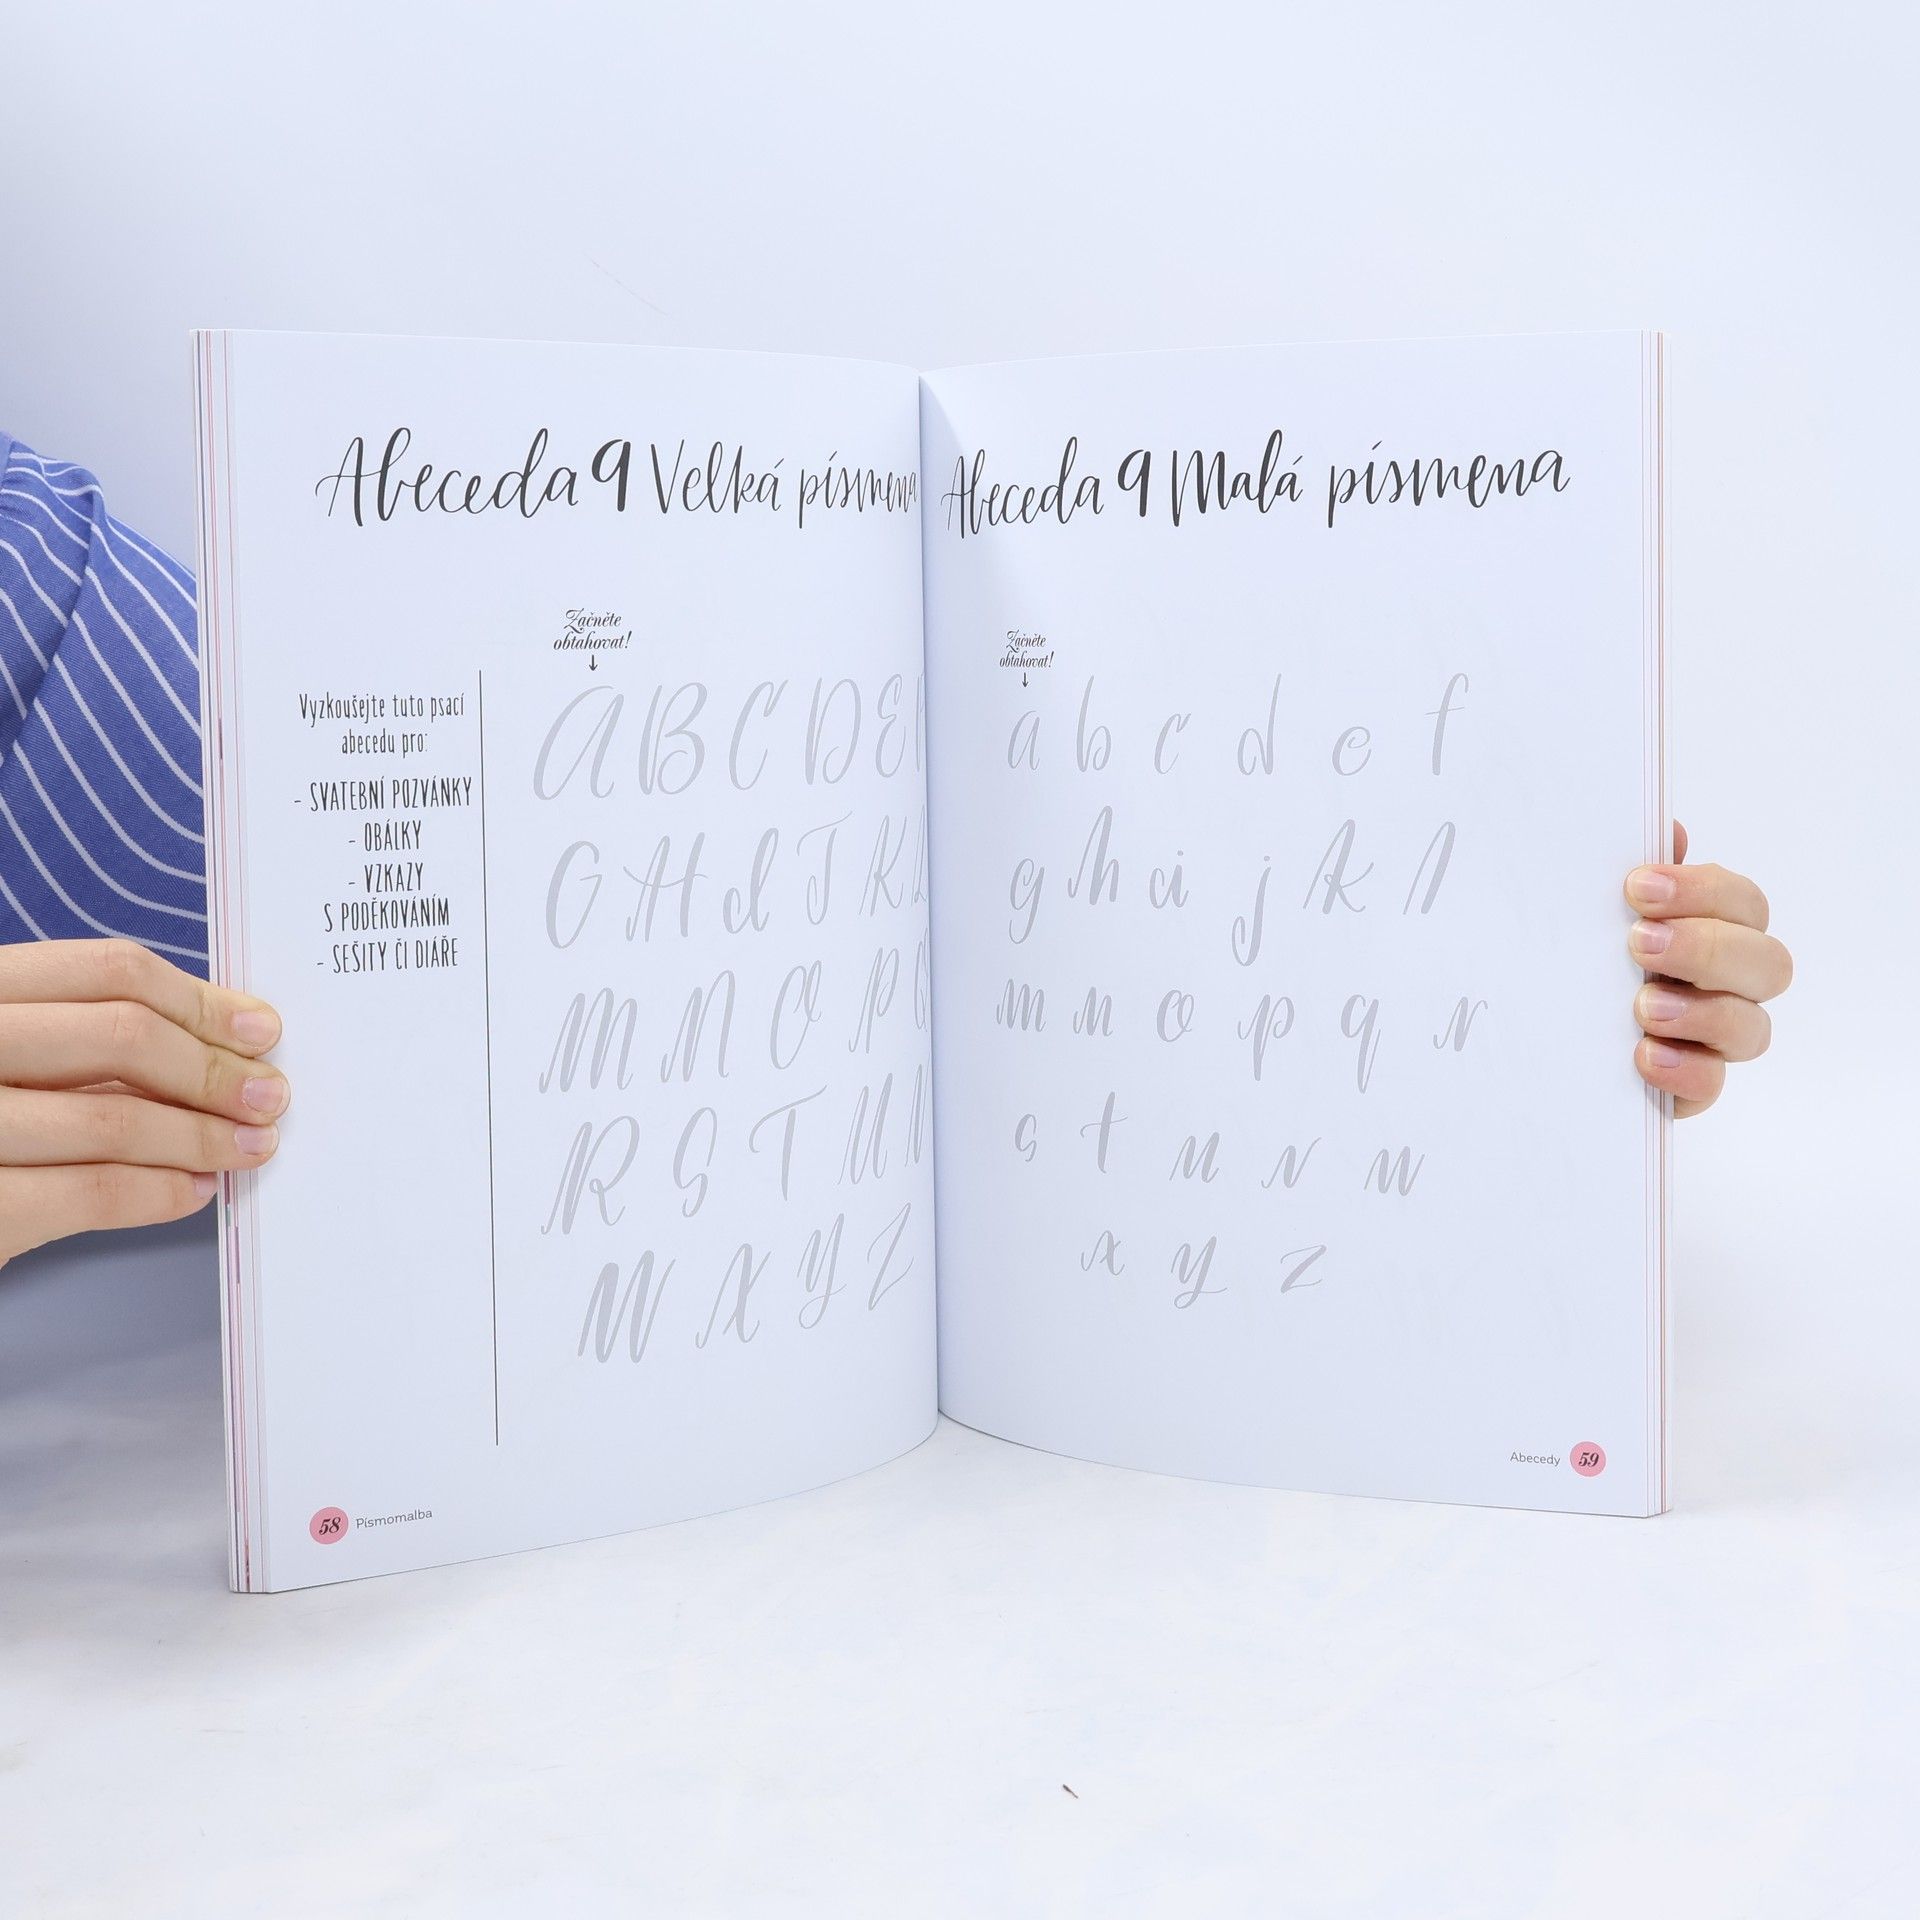 Abeceda 9 Velká písmena
Začněte
obtahovat!
Vyzkoušejte tuto psací
abecedu pro:
- SVATEBNÍ POZVÁNKY
- OBÁLKY
- VZKAZY
S PODĚKOVÁNÍM
- SEŠITY ČI DIÁŘE
A B C D E F
G H I J K L
M N O P Q
R S T U V
W X Y Z
58 Písmomalba
Abeceda 9 Malá písmena
Začněte
obtahovat!
a b c d e f
g h i j k l
m n o p q r
s t u v w
x y z
Abecedy 59